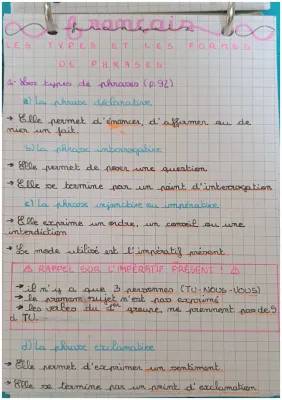 français
LES TYPES ET LES FORMES
DE PHRASES
Les types de phrases (p.92)
a) La phrase déclarative
→ Elle permet d'énoncer, d'affirmer ou de
nier un fait.
b) La phrase interrogative
→ Elle permet de poser une question
→ Elle se termine par un point d'interrogation
c) La phrase injonctive ou impérative
→ Elle exprime un ordre, un conseil ou une
interdiction
→ Le mode utilisé est l'impératif présent
⚠ RAPPEL SUR L'IMPÉRATIF PRÉSENT ! ⚠
→ il n'y a que 3 personnes (TU-NOUS-VOUS)
→ le pronom sujet n'est pas exprimé
→ les verbes du 1er groupe, ne prennent pas de S
à TU.
d) La phrase exclamative
→ Elle permet d'exprimer un sentiment.
→ Elle se termine par un point d'exclamation